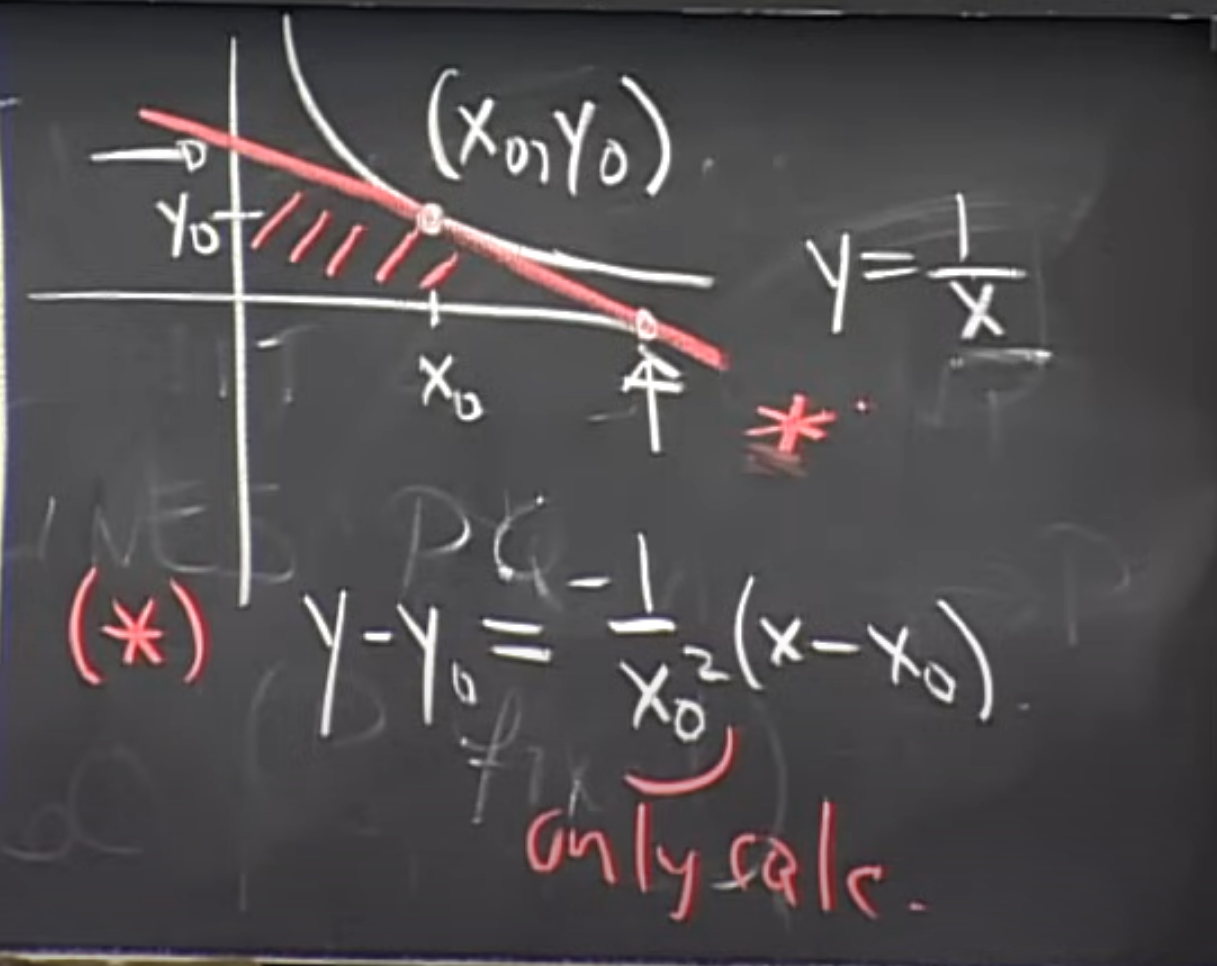 (x₀, y₀).
y₀
x₀
y = 1/x
*
(*) y - y₀ = -1/x₀² (x - x₀).
only calc.